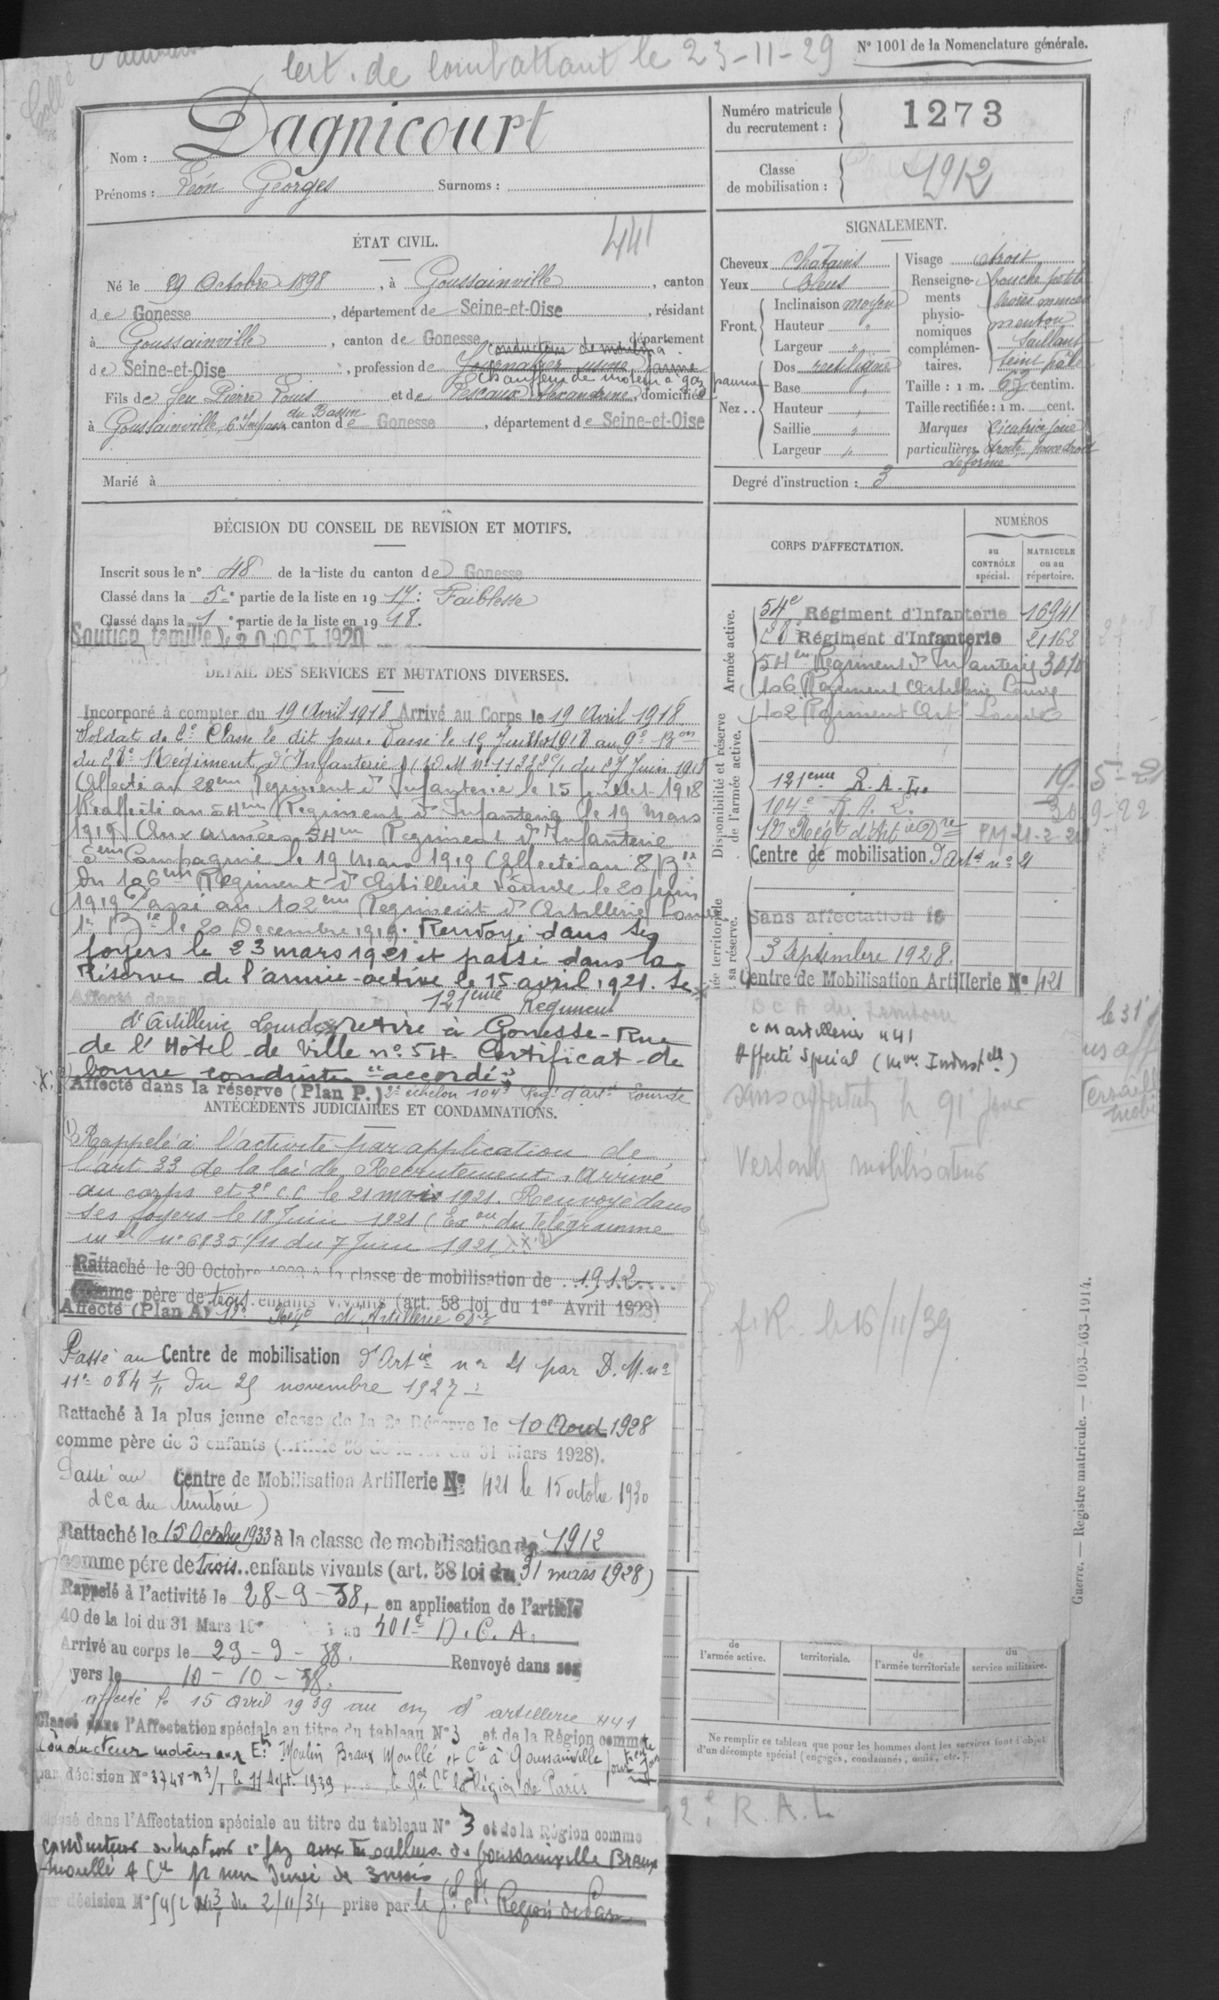 Cert. de Combattant le 23-11-29
N° 1001 de la Nomenclature générale.
Nom : Dagnicourt
Prénoms : Léon Georges Surnoms :
Numéro matricule du recrutement : 1273
Classe de mobilisation : 1912
ÉTAT CIVIL.
441
Né le 29 Octobre 1898, à Goussainville, canton
de Gonesse, département de Seine-et-Oise, résidant
à Goussainville, canton de Gonesse, département
conducteur de moulin à
de Seine-et-Oise, profession de Journalier usine farine
Chauffeur de moteur à gaz pauvre
Fils de feu Pierre Louis et de Pescaux Alexandrine, domiciliés
du Bassin
à Goussainville, 6 canton de Gonesse, département de Seine-et-Oise
Marié à
SIGNALEMENT.
Cheveux Châtains
Yeux bleus
Front. Inclinaison moyen
Hauteur "
Largeur "
Nez.. Dos rectiligne
Base "
Hauteur "
Saillie "
Largeur "
Visage étroit
Renseignements physionomiques complémentaires. bouche petite
lèvres minces
menton
saillant
teint pâle
Taille : 1 m. 62 centim.
Taille rectifiée : 1 m. cent.
Marques particulières. Cicatrice joue
droite, pouce droit
déformé
Degré d'instruction : 3
DÉCISION DU CONSEIL DE REVISION ET MOTIFS.
Inscrit sous le n° 48 de la liste du canton de Gonesse
Classé dans la 5e partie de la liste en 1917: Faiblesse
Classé dans la 1e partie de la liste en 1918.
Soutien famille le 20 OCT 1920
DÉTAIL DES SERVICES ET MUTATIONS DIVERSES.
Incorporé à compter du 19 Avril 1918 Arrivé au Corps le 19 Avril 1918
Soldat de 2e Classe le dit jour. Passé le 15 Juillet 1918 au 9e Bon
du 28e Régiment d'Infanterie (D M n° 11322 du 27 Juin 1918
Affecté au 28eme Régiment d'Infanterie le 15 juillet 1918
Réaffecté au 54eme Régiment d'Infanterie le 19 Mars
1919. Aux armées 54em Régiment d'Infanterie
5eme Compagnie le 19 Mars 1919 Affecté au 8 Bie
du 106eme Régiment d'Artillerie Lourde le 20 juin
1919 Passé au 102em Régiment d'Artillerie Lourde
1e Bie le 20 Décembre 1919. Renvoyé dans ses
foyers le 23 mars 1921 et passé dans la
Réserve de l'armée active le 15 avril 1921. Se
Affecté dans 121eme Régiment
d'Artillerie Lourde retire à Gonesse - Rue
de l'Hôtel de Ville n° 54. Certificat de
bonne conduite "accordé"
Affecté dans la réserve (Plan P.) 2e échelon 104e Rég. d'art. Lourde
ANTÉCÉDENTS JUDICIAIRES ET CONDAMNATIONS.
Rappelé à l'activité par application de
l'art 33 de la loi de Recrutement. Arrivé
au corps et 2e C.C. le 21 mai 1921. Renvoyé dans
ses foyers le 18 Juin 1921 (Exon du Télégramme
mel n° 6835/11 du 7 Juin 1921)
Rattaché le 30 Octobre à la classe de mobilisation de 1912
comme père de trois enfants vivants (art. 58 loi du 1er Avril 1923)
Affecté (Plan A) Régt d'Artillerie Dre
Passé au Centre de mobilisation d'Artie n° 21 par D. M. n°
11e 084 1/11 du 25 novembre 1927
Rattaché à la plus jeune classe de la 2e Réserve le 10 Aout 1928
comme père de 3 enfants ( 31 Mars 1928).
Passé au Centre de Mobilisation Artillerie No 421 le 15 octobre 1930
dca du territoire)
Rattaché le 15 Octobre 1933 à la classe de mobilisation de 1912
comme père de trois enfants vivants (art. 58 loi du 31 mars 1928)
Rappelé à l'activité le 28-9-38, en application de l'article
40 de la loi du 31 Mars au 401e D.C.A.
Arrivé au corps le 29-9-38. Renvoyé dans ses
yers le 10-10-38.
affecté le 15 avril 1939 au cm d'artillerie 441
Classé dans l'Affectation spéciale au titre du tableau N° 3 et de la Région comme
conducteur moteurs aux Ets Moulin Braux Moullé et Cie à Goussainville pour
par décision N° 3748-n3/1 le 11 Sept. 1939 le Gal Ct la Région de Paris
Classé dans l'Affectation spéciale au titre du tableau N° 3 et de la Région comme
conducteur de moteur à gaz aux Moulins de Goussainville Braux
Moullé & Cie pr une durée de 3 mois
décision N° du 2/11/39 prise par le Gal Ct Région de Paris
CORPS D'AFFECTATION.
NUMÉROS
au CONTRÔLE spécial.
MATRICULE ou au répertoire.
Armée active.
54e Régiment d'Infanterie 16941
28e Régiment d'Infanterie 21162
54em Régiment d'Infanterie 3070
106 Régiment Artillerie Lourde
102 Régiment Art Lourde
Disponibilité et réserve de l'armée active.
121eme R.A.L. 19-5-21
104e R.A.L. 30-9-22
Régt d'Artie Dre PM 21-2-2
Centre de mobilisation d'Artie n° 21
Armée territoriale sa réserve.
Sans affectation le
3 Septembre 1928.
Centre de Mobilisation Artillerie No 421
DCA du territoire
CM artillerie 441
Affecté Spécial (Mon Industelle)
Sans affectation le 91e jour
f.R. le 16/11/39
Guerre. — Registre matricule. — 1003-463-1914.
de l'armée active.
territoriale.
de l'armée territoriale
du service militaire.
Ne remplir ce tableau que pour les hommes dont les services font l'objet
d'un décompte spécial (engagés, condamnés, omis, etc.).
R.A.L